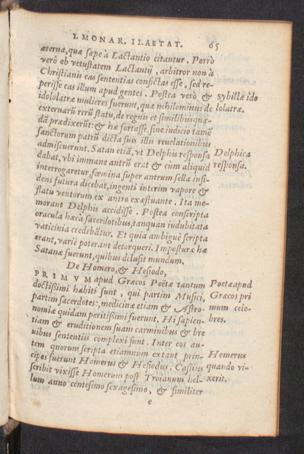 I. MONAR. II. AETAT. 65
aterna, quæ sæpe à Lactantio citantur. Porrò
verò ob vetustatem Lactantij, arbitror non à
Christianis eas sententias confictas esse, sed re-
perisse eas illum apud gentes. Postea verò &
idololatræ mulieres fuerunt, quæ nihilominus de
externarũ rerũ statu, de regnis et similibus quæ-
dã prædixerũt: & hæ fortasse, sine iudicio tamẽ
sanctorum patrũ dicta suis illis reuelationibus
admiscuerunt. Satan etiã, vt Delphis responsa
dabat, vbi immane antrũ erat & cùm aliquid
interrogatur, fœmina super antrum sellæ insi-
dens futura dicebat, ingenti interim vapore &
flatu ventorum ex antro exæstuante. Ita me-
morant Delphis accidisse. Postea conscripta
oracula hæc à sacerdotibus, tanquam indubitata
vaticinia credebãtur. Et quia ambiguè scripta
erant, variè poterant detorqueri. Imposturæ hæ
Satanæ fuerunt, quibus delusit mundum.
Sybillæ ido
lolatræ.
Delphica
responsa.
De Homero, & Hesiodo,
PRIMVM apud Græcos Poëtæ tantum
doctissimi habiti sunt, qui partim Musici,
partim sacerdotes, medicinæ etiam, & Astro-
nomiæ quidam peritissimi fuerunt. Hi sapien-
tiam & eruditionem suam carminibus & bre
uibus sententiis complexi sunt. Inter eos au-
tem quorum scripta etiamnum extant prin-
cipes fuerunt Homerus & Hesiodus. Cassius
scribit vixisse Homerum post Troianum bel-
lum anno centesimo sexagesimo, & similiter
Poëtæ apud
Græcos pri
mum cele-
bres.
Homerus
quando vi-
xerit.
e